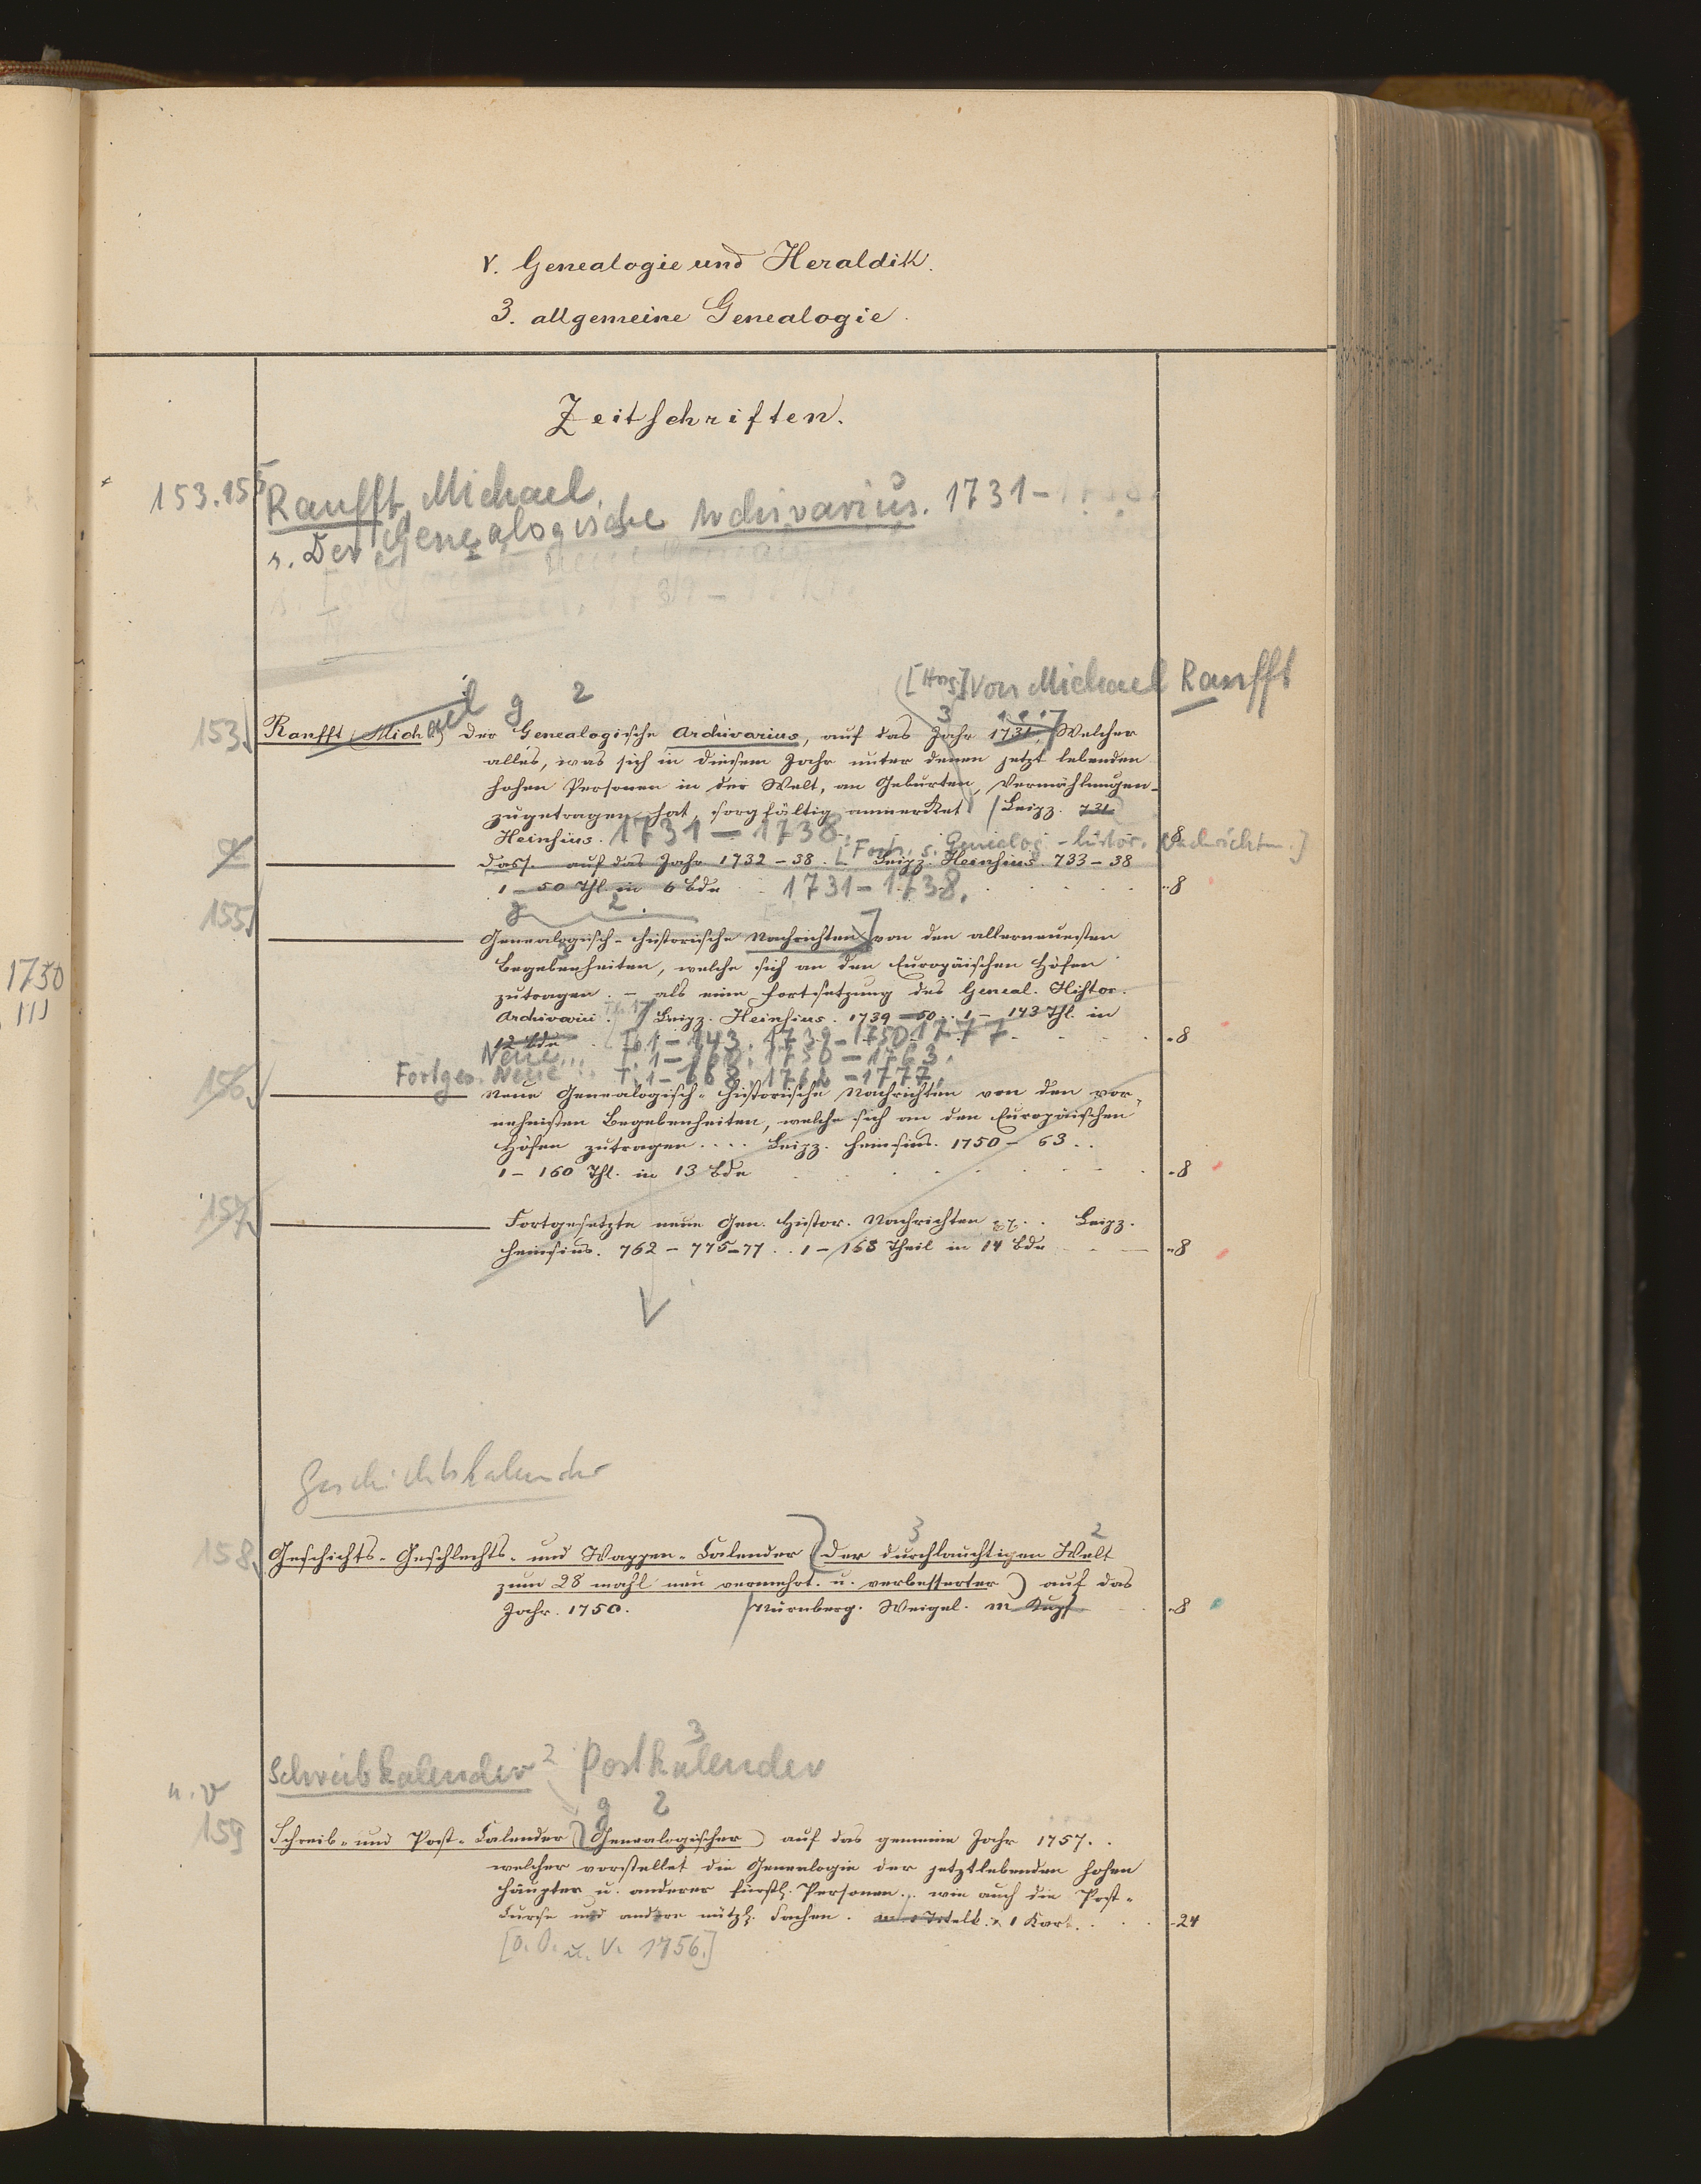 V. Genealogie und Heraldik.
3. allgemeine Genealogie.
Zeitschriften.
153.155 Ranfft, Michael.
s. Der Genealogische Archivarius. 1731-1738.
[Hrsg.] von Michael Ranfft
g 2 3
153. Ranfft (Michael) Der Genealogische Archivarius, auf das Jahr 1731, Welcher
alles, was sich in diesem Jahr unter denen jetzt lebenden
hohen Personen in der Welt, an Geburten, Vermählungen
zugetragen hat, sorgfältig anmerket. Leipz. 731
Heinsius. 1731-1738. 8
[Forts. s. Genealog.-histor. Nachrichten.]
dass. auf das Jahr 1732-38. Leipz. Heinsius. 733-38
1-50 Thl. in 6 Bde 1731-1738. 8
g 2
155. Genealogisch-historische Nachrichten von den allerneuesten
Begebenheiten, welche sich an den Europäischen Höfen
zutragen. - als eine Fortsetzung des Geneal. Histor.
Archivarii. Leipz. Heinsius. 1739-50. 1-143 Thl. in
12 Bde T. 1-143. 1739-1750 1777 8
Neue... T. 1-160. 1750-1763.
Fortges. Neue... T. 1-168. 1762-1777.
156. Neue Genealogisch-historische Nachrichten von den vor-
nehmsten Begebenheiten, welche sich an den Europäischen
Höfen zutragen.... Leipz. Heinsius. 1750-63..
1-160 Thl. in 13 Bde 8
157. Fortgesetzte neue Gen. Histor. Nachrichten .. Leipz.
Heinsius. 762-775-77.. 1-168 Theil in 14 Bde 8
1750
III
Geschichtskalender
3 2
158. Geschichts-Geschlechts- und Wappen-Calender (Der durchlauchtigen Welt
zum 28 mahl neu vermehrt. u. verbesserter) auf das
Jahr. 1750. Nürnberg. Weigel. m Kupf. 8
Schreibkalender 2 Postkalender 3
n. v
g 2
159 Schreib- und Post-Calender (Genealogischer) auf das gemeine Jahr 1757..
welcher vorstellet die Genealogie der jetztlebenden hohen
Häupter u. anderer fürstl. Personen... wie auch die Post-
Curse und andere nützl. Sachen. m 1 Titelk. 1 Kart. 24
[O. O. u. V. 1756.]